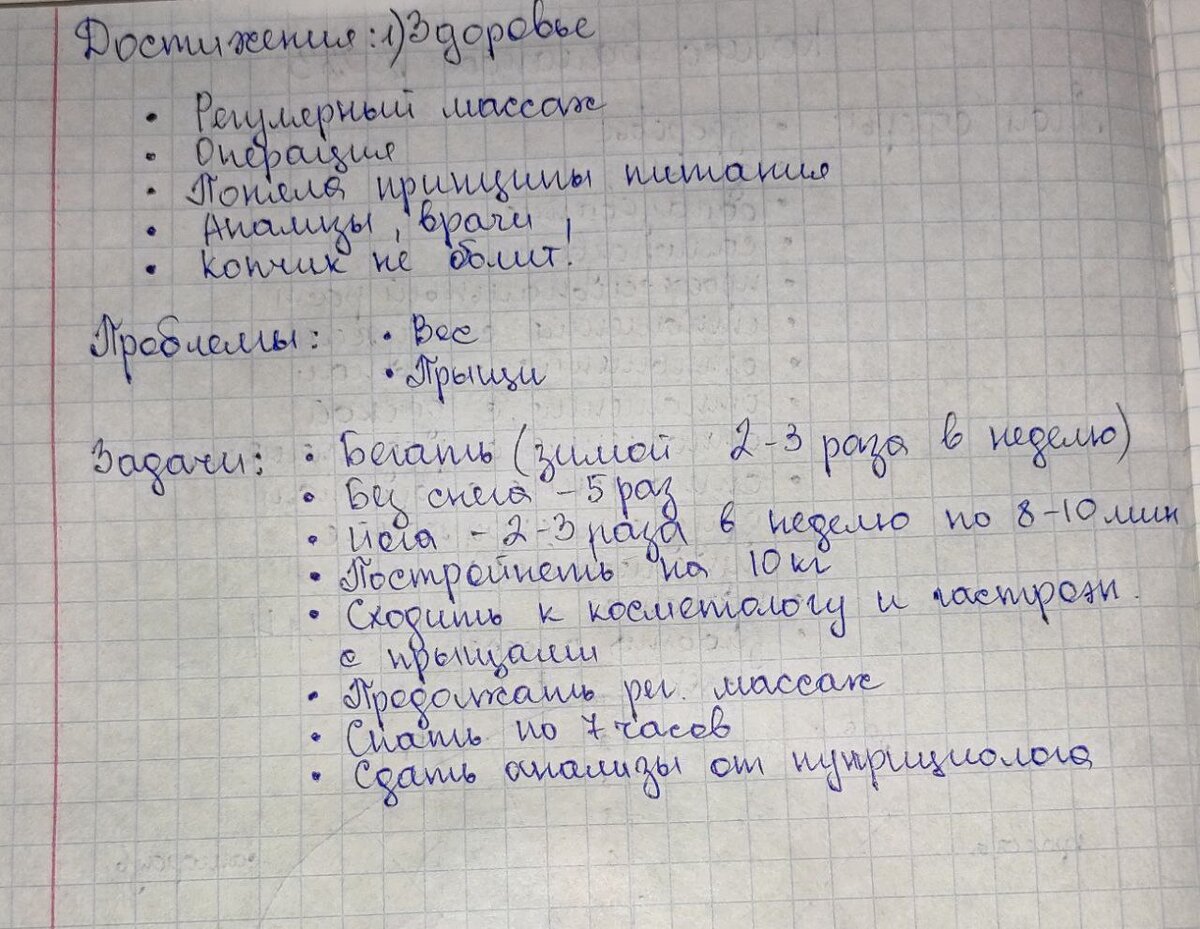 Достижения: 1) Здоровье
• Регулярный массаж
• Операция
• Поняла принципы питания
• Анализы, врачи
• Копчик не болит!
Проблемы: • Вес
• Прыщи
Задачи: • Бегать (зимой 2-3 раза в неделю)
• Без снега - 5 раз
• Йога - 2-3 раза в неделю по 8-10 мин
• Постройнеть на 10 кг
• Сходить к косметологу и гастроэн.
с прыщами
• Продолжать рег. массаж
• Спать по 7 часов
• Сдать анализы от нутрициолога